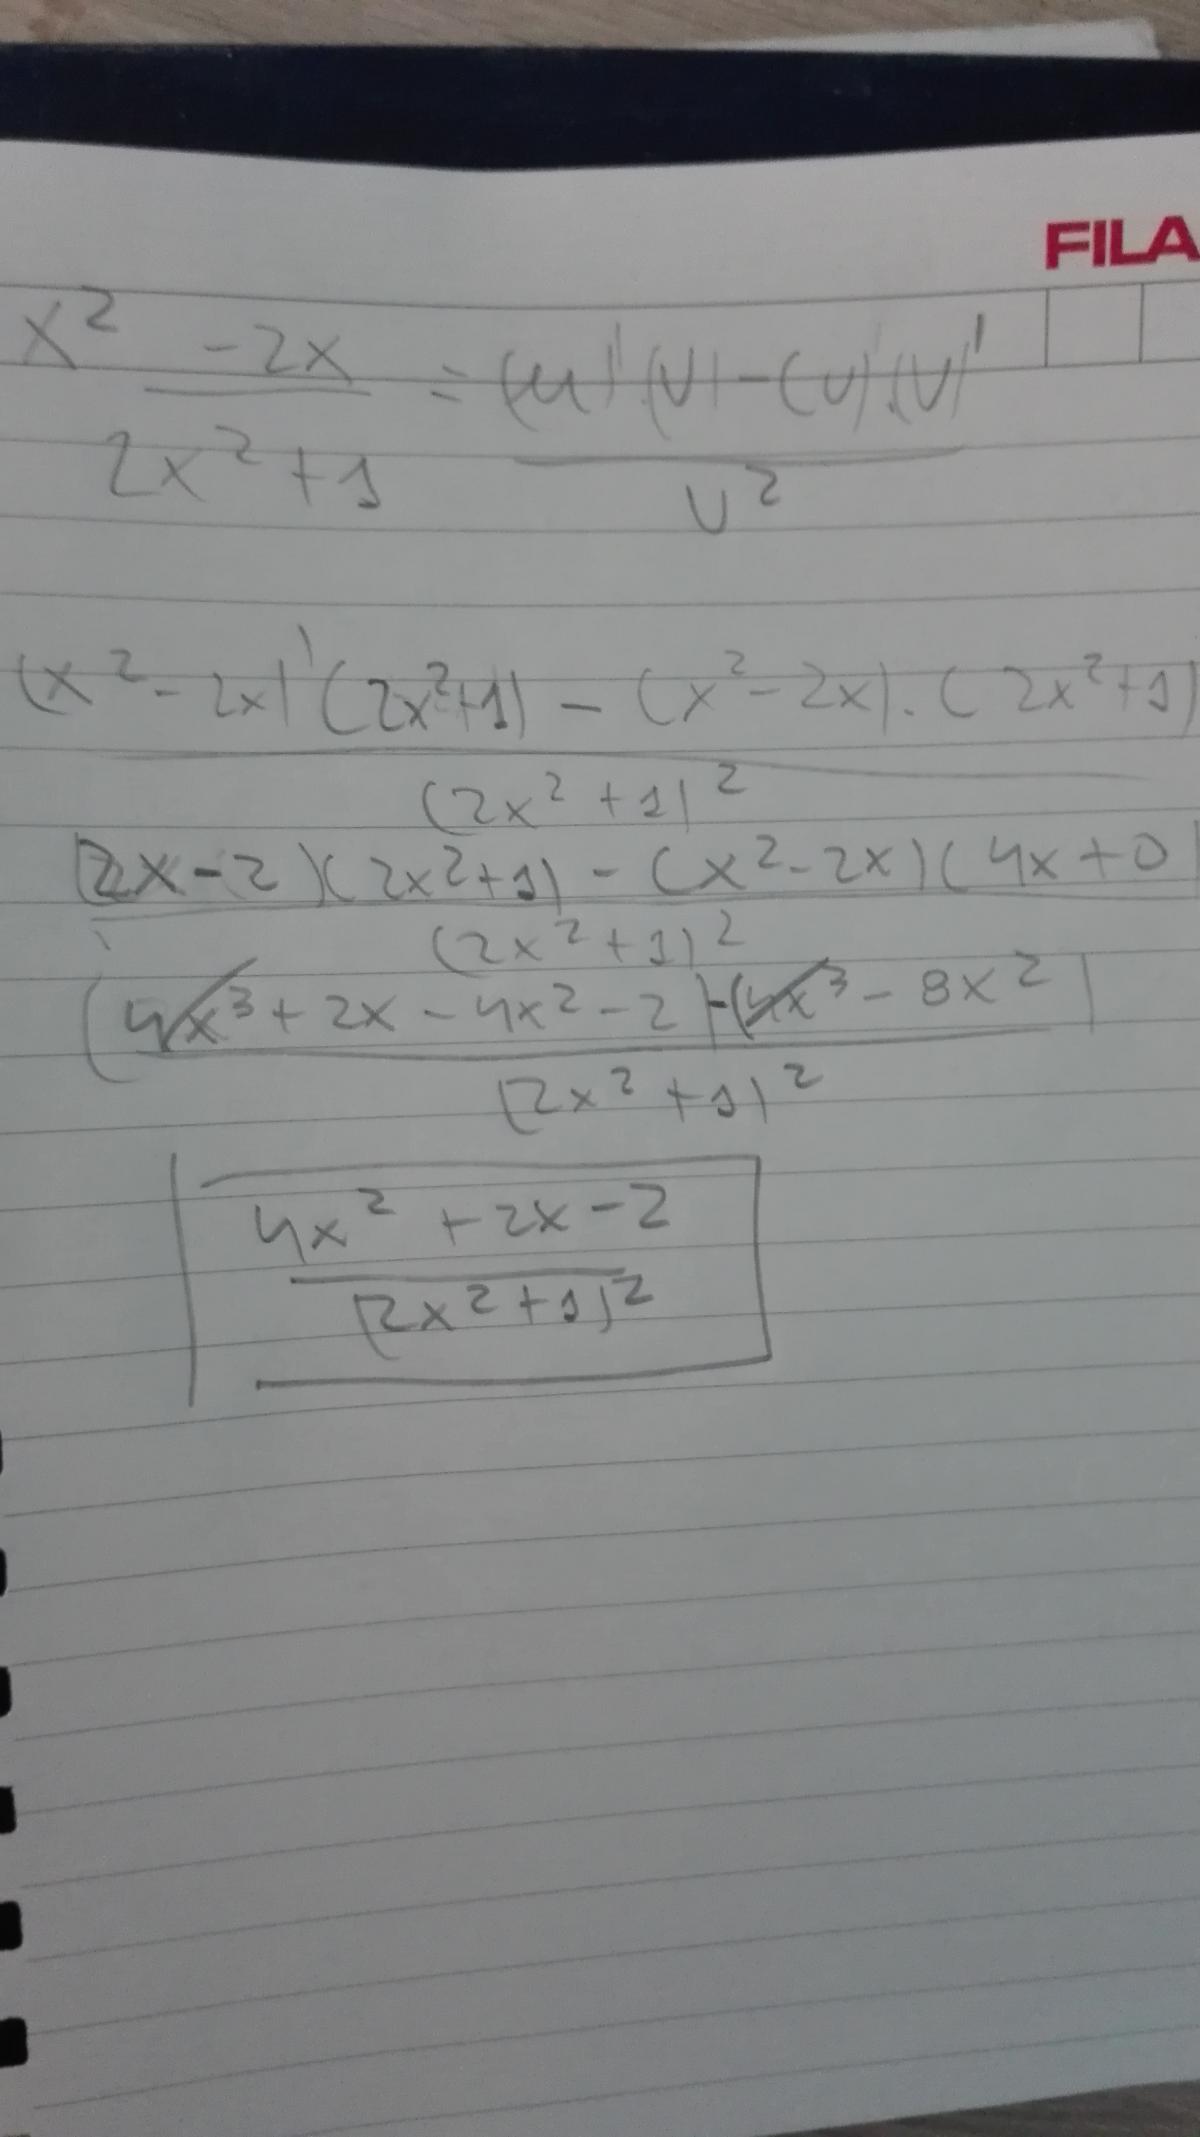 FILA
x² - 2x = (u)' (v) - (u) . (v)'
2x² + 1 v²
(x² - 2x)' (2x²+1) - (x² - 2x) . (2x²+1)
(2x² + 1)²
(2x - 2)(2x²+1) - (x² - 2x)(4x + 0
(2x² + 1)²
(4x³ + 2x - 4x² - 2) - (4x³ - 8x²)
(2x² + 1)²
4x² + 2x - 2
(2x² + 1)²